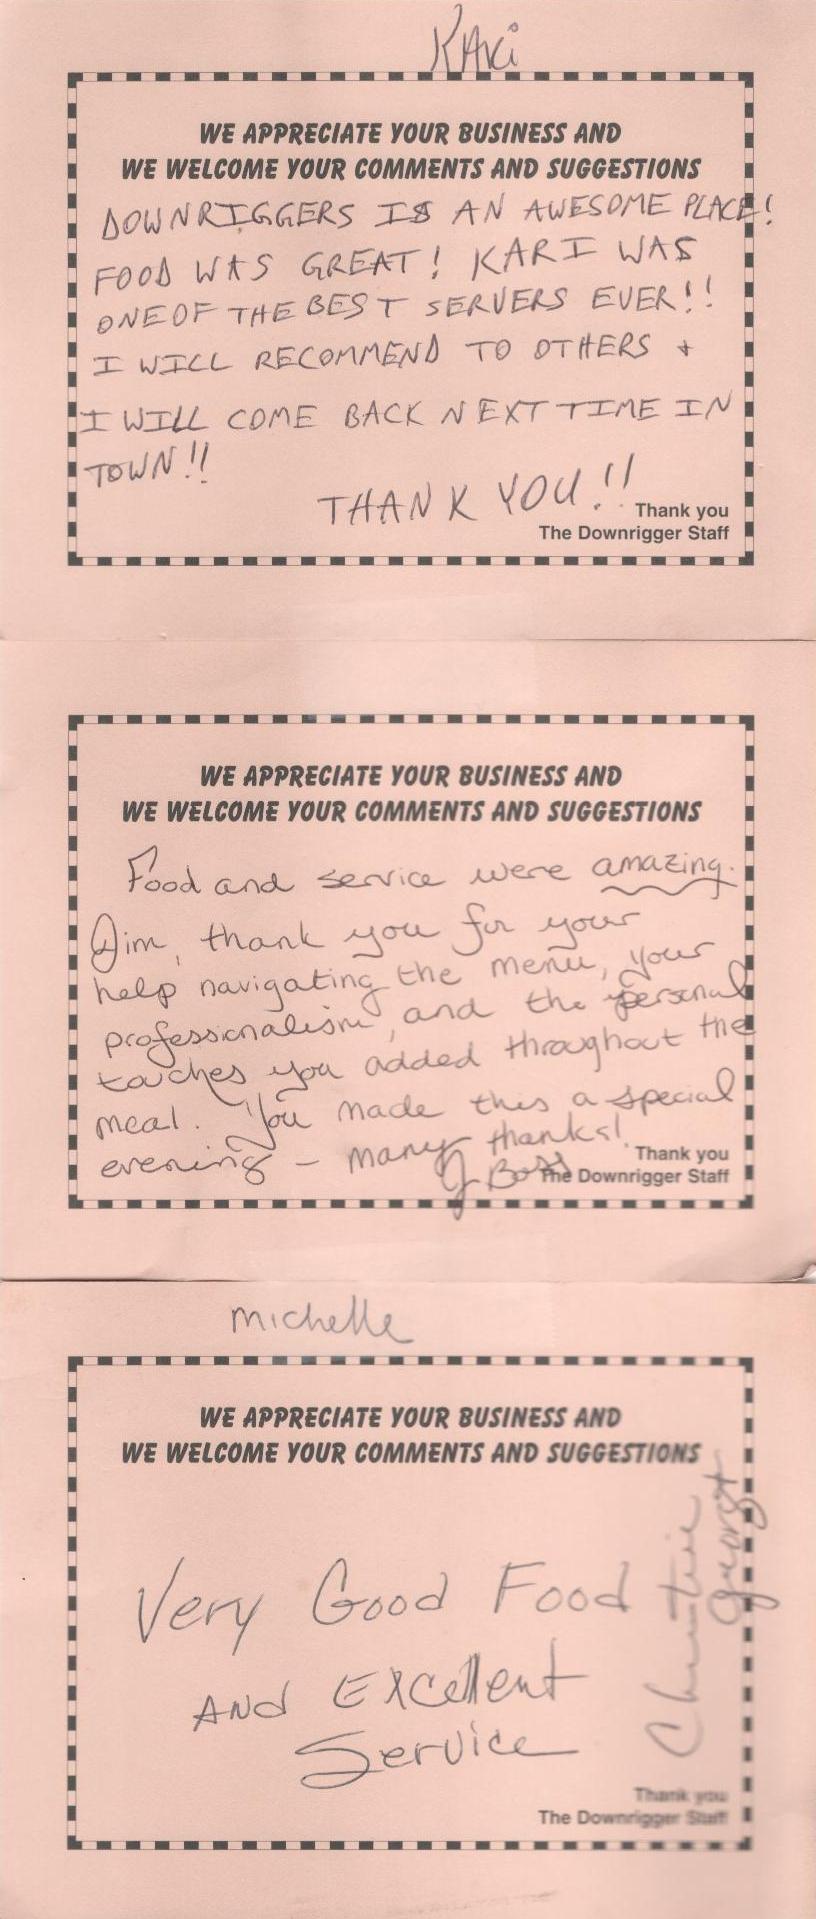 KARi
WE APPRECIATE YOUR BUSINESS AND
WE WELCOME YOUR COMMENTS AND SUGGESTIONS
DOWNRIGGERS IS AN AWESOME PLACE!
FOOD WAS GREAT! KARI WAS
ONE OF THE BEST SERVERS EVER!!
I WILL RECOMMEND TO OTHERS +
I WILL COME BACK NEXT TIME IN
TOWN!!
THANK YOU!!
Thank you
The Downrigger Staff
WE APPRECIATE YOUR BUSINESS AND
WE WELCOME YOUR COMMENTS AND SUGGESTIONS
Food and service were amazing.
Jim, thank you for your
help navigating the menu, your
professionalism, and the personal
touches you added throughout the
meal. You made this a special
evening - many thanks!
Thank you
The Downrigger Staff
michelle
WE APPRECIATE YOUR BUSINESS AND
WE WELCOME YOUR COMMENTS AND SUGGESTIONS
Very Good Food
AND Excellent
Service
Christine
Thank you
The Downrigger Staff